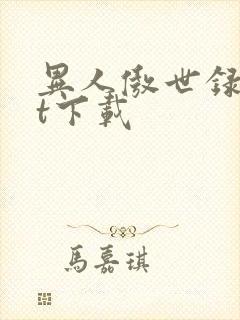 異人傲世録
t下載
馬嘉琪